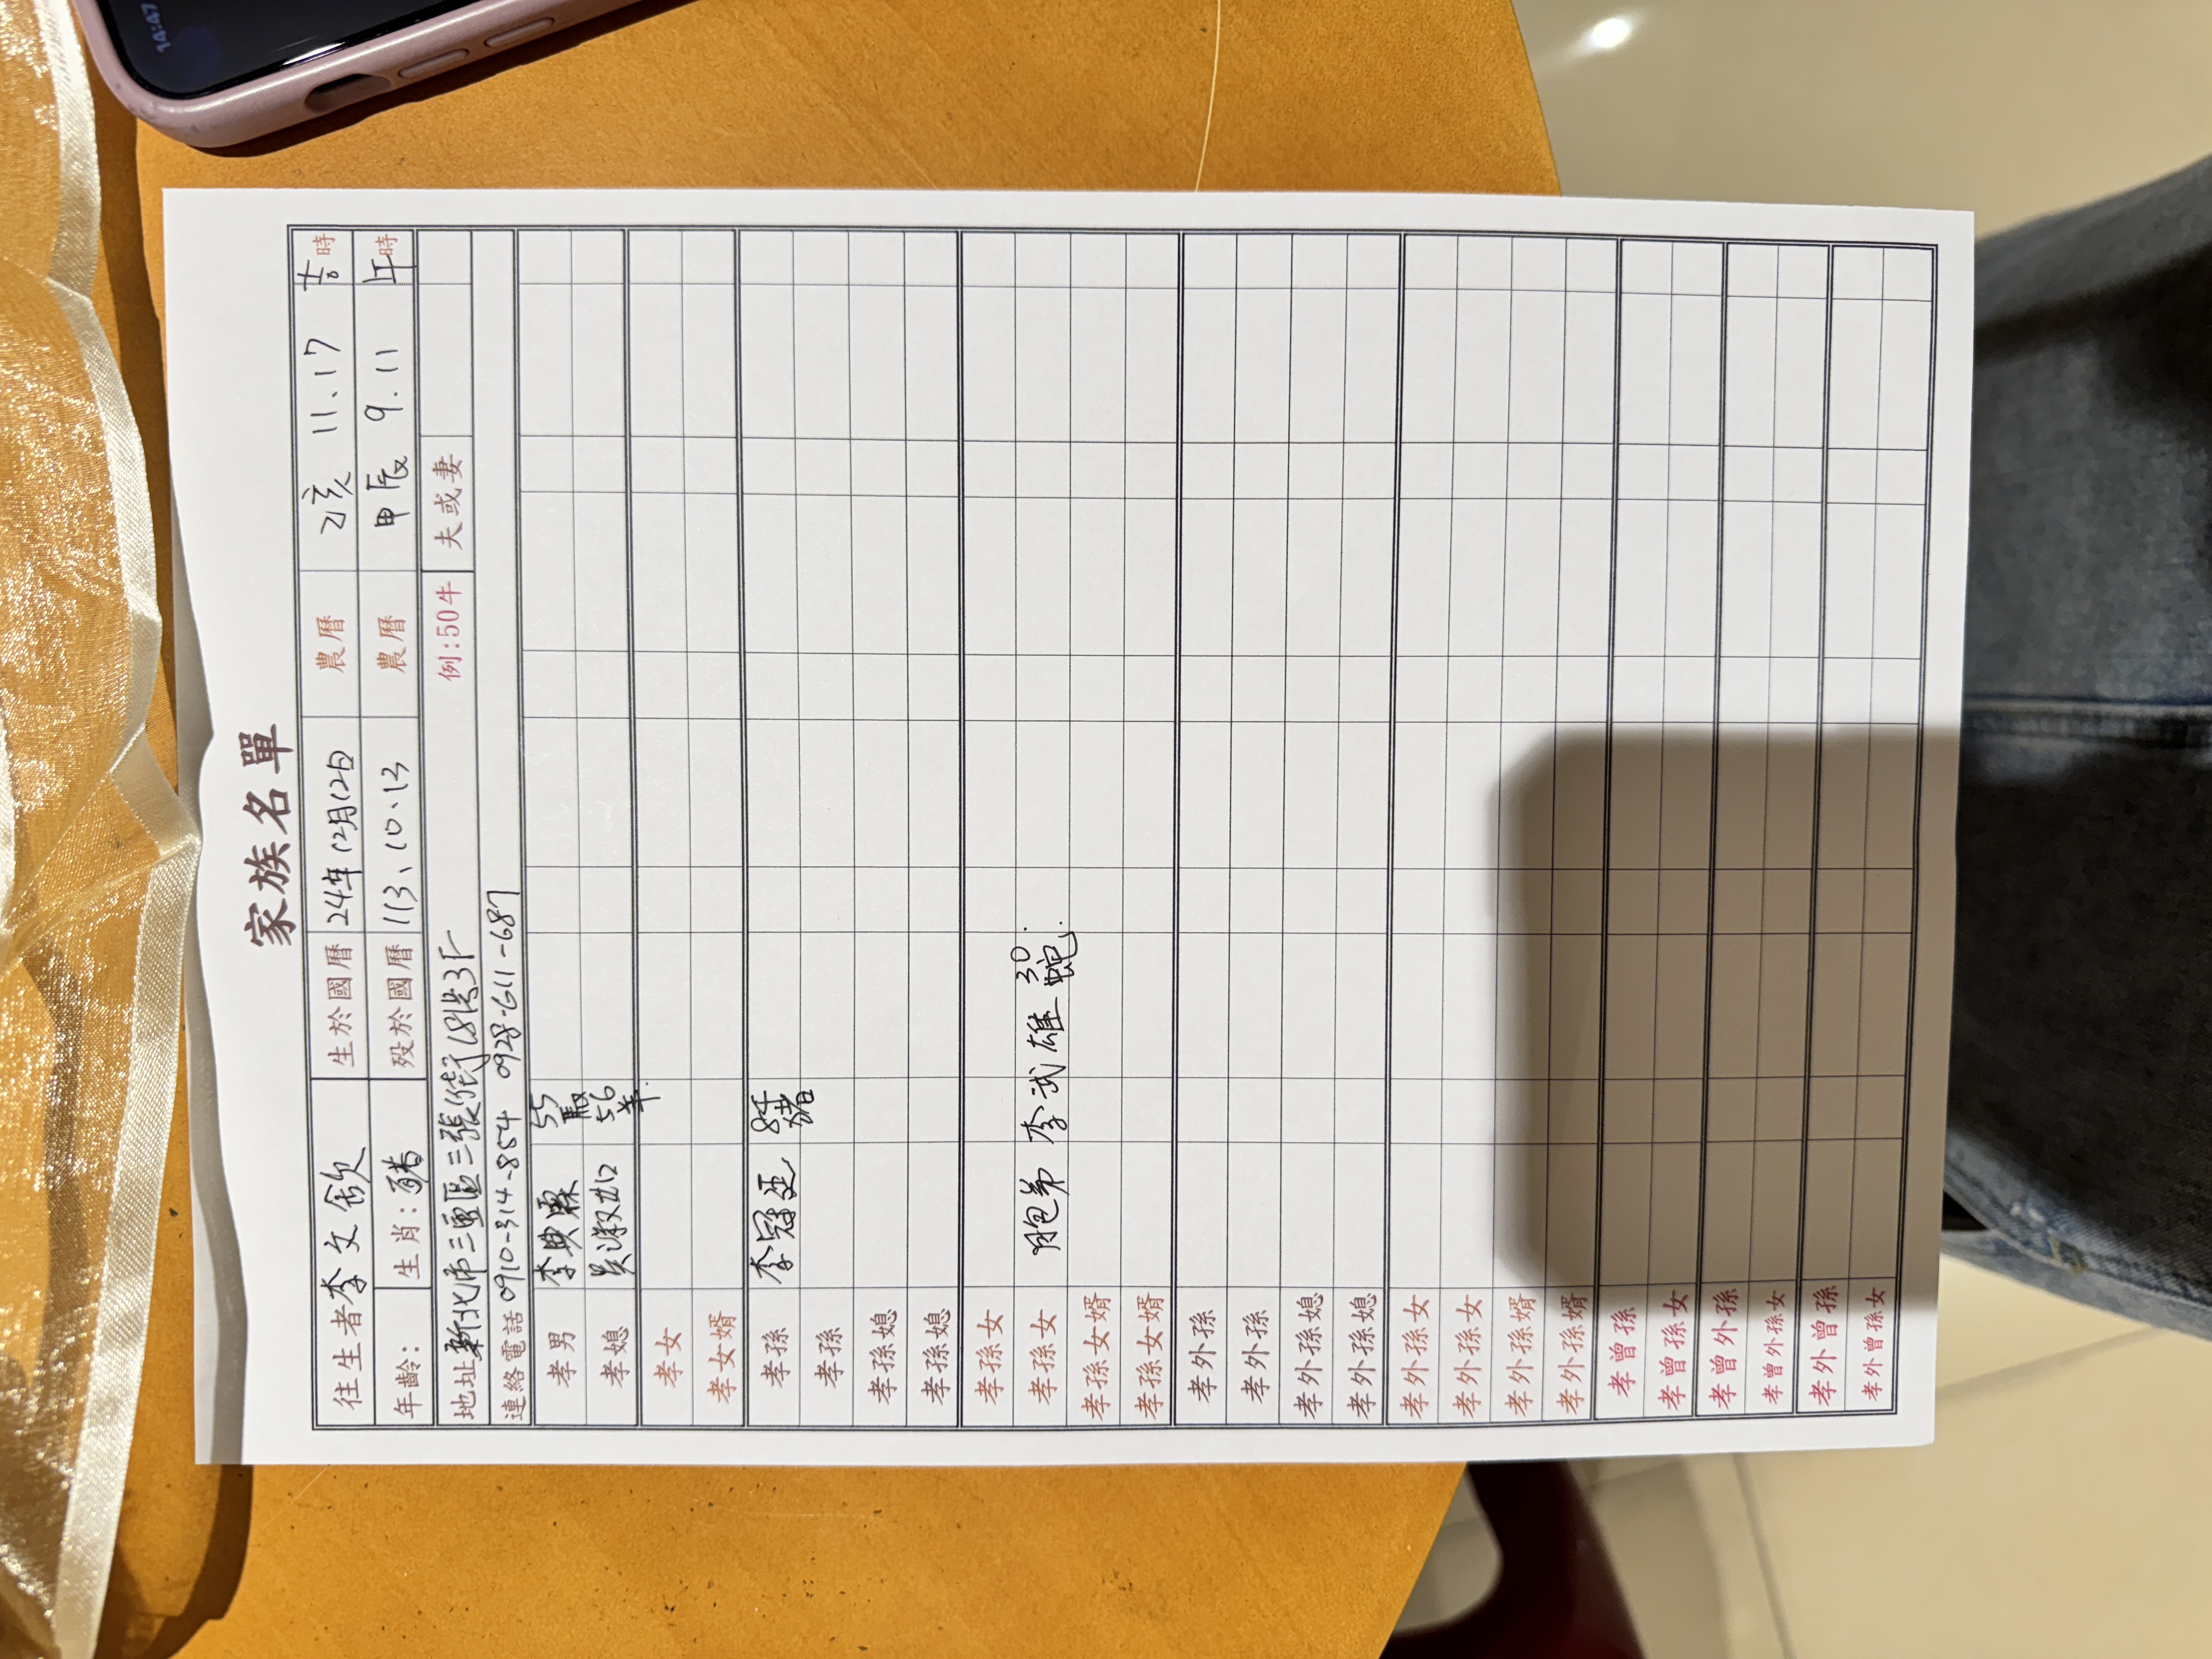 14:47
家族名單
往生者 李文欽 生於國曆 24年12月12日 農曆 乙亥 11.17 吉時
年齡: 生肖: 豬 殁於國曆 113、10、13 農曆 甲辰 9.11 午時
地址 新北市三重區三張街18號3F 例:50牛 夫或妻
連絡電話 0910-314-854 0928-611-687
孝男 李典霖 55馬
孝媳 吳淑如 56羊
孝女
孝女婿
孝孫 李冠廷 84豬
孝孫
孝孫媳
孝孫媳
孝孫女
孝孫女 胞弟 李武雄 30蛇
孝孫女婿
孝孫女婿
孝外孫
孝外孫
孝外孫媳
孝外孫媳
孝外孫女
孝外孫女
孝外孫婿
孝外孫婿
孝曾孫
孝曾孫女
孝曾外孫
孝曾外孫女
孝外曾孫
孝外曾孫女